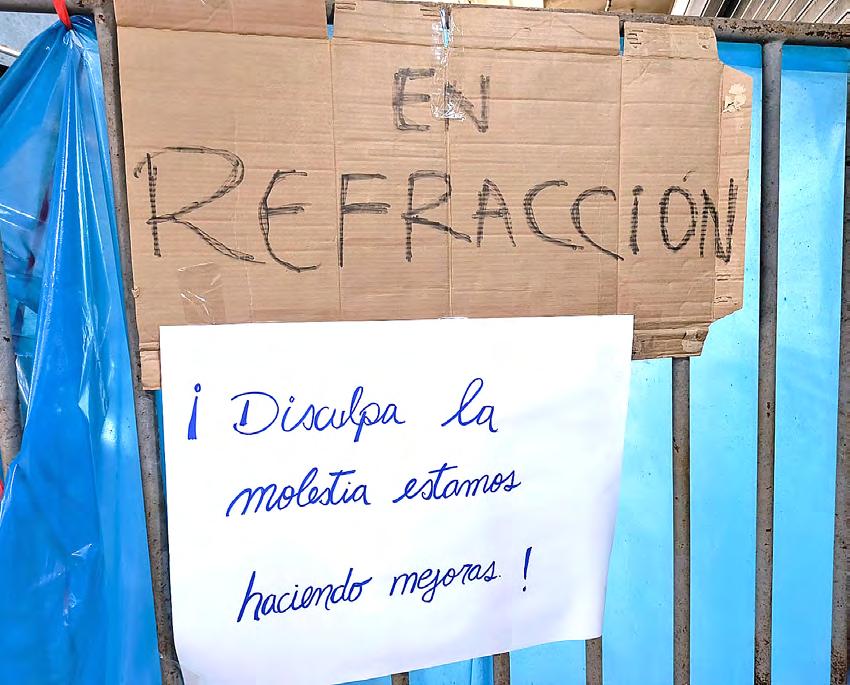 EN
REFRACCIÓN
¡ Disculpa la
molestia estamos
haciendo mejoras. !